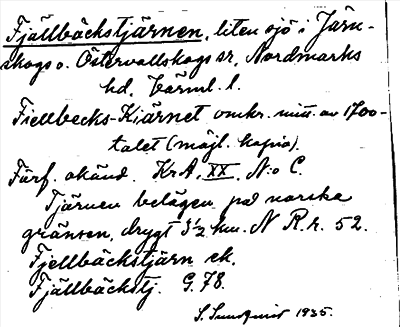 Fjällbäckstjärnen, liten sjö i Järn-
skogs o. Östervallskogs sr, Nordmarks
hd, Värml. l.
Fiellbecks-Kiärnet omkr. mitt. av 1700-
talet (möjl. kopia).
Förf. okänd. KrA, XX, N:o C.
Tjärnen belägen på norska
gränsen, drygt 3½ km. N R.r. 52.
Fjellbäckstjärn ek.
Fjällbäckstj. G. 78.
S. Sundquist 1935.